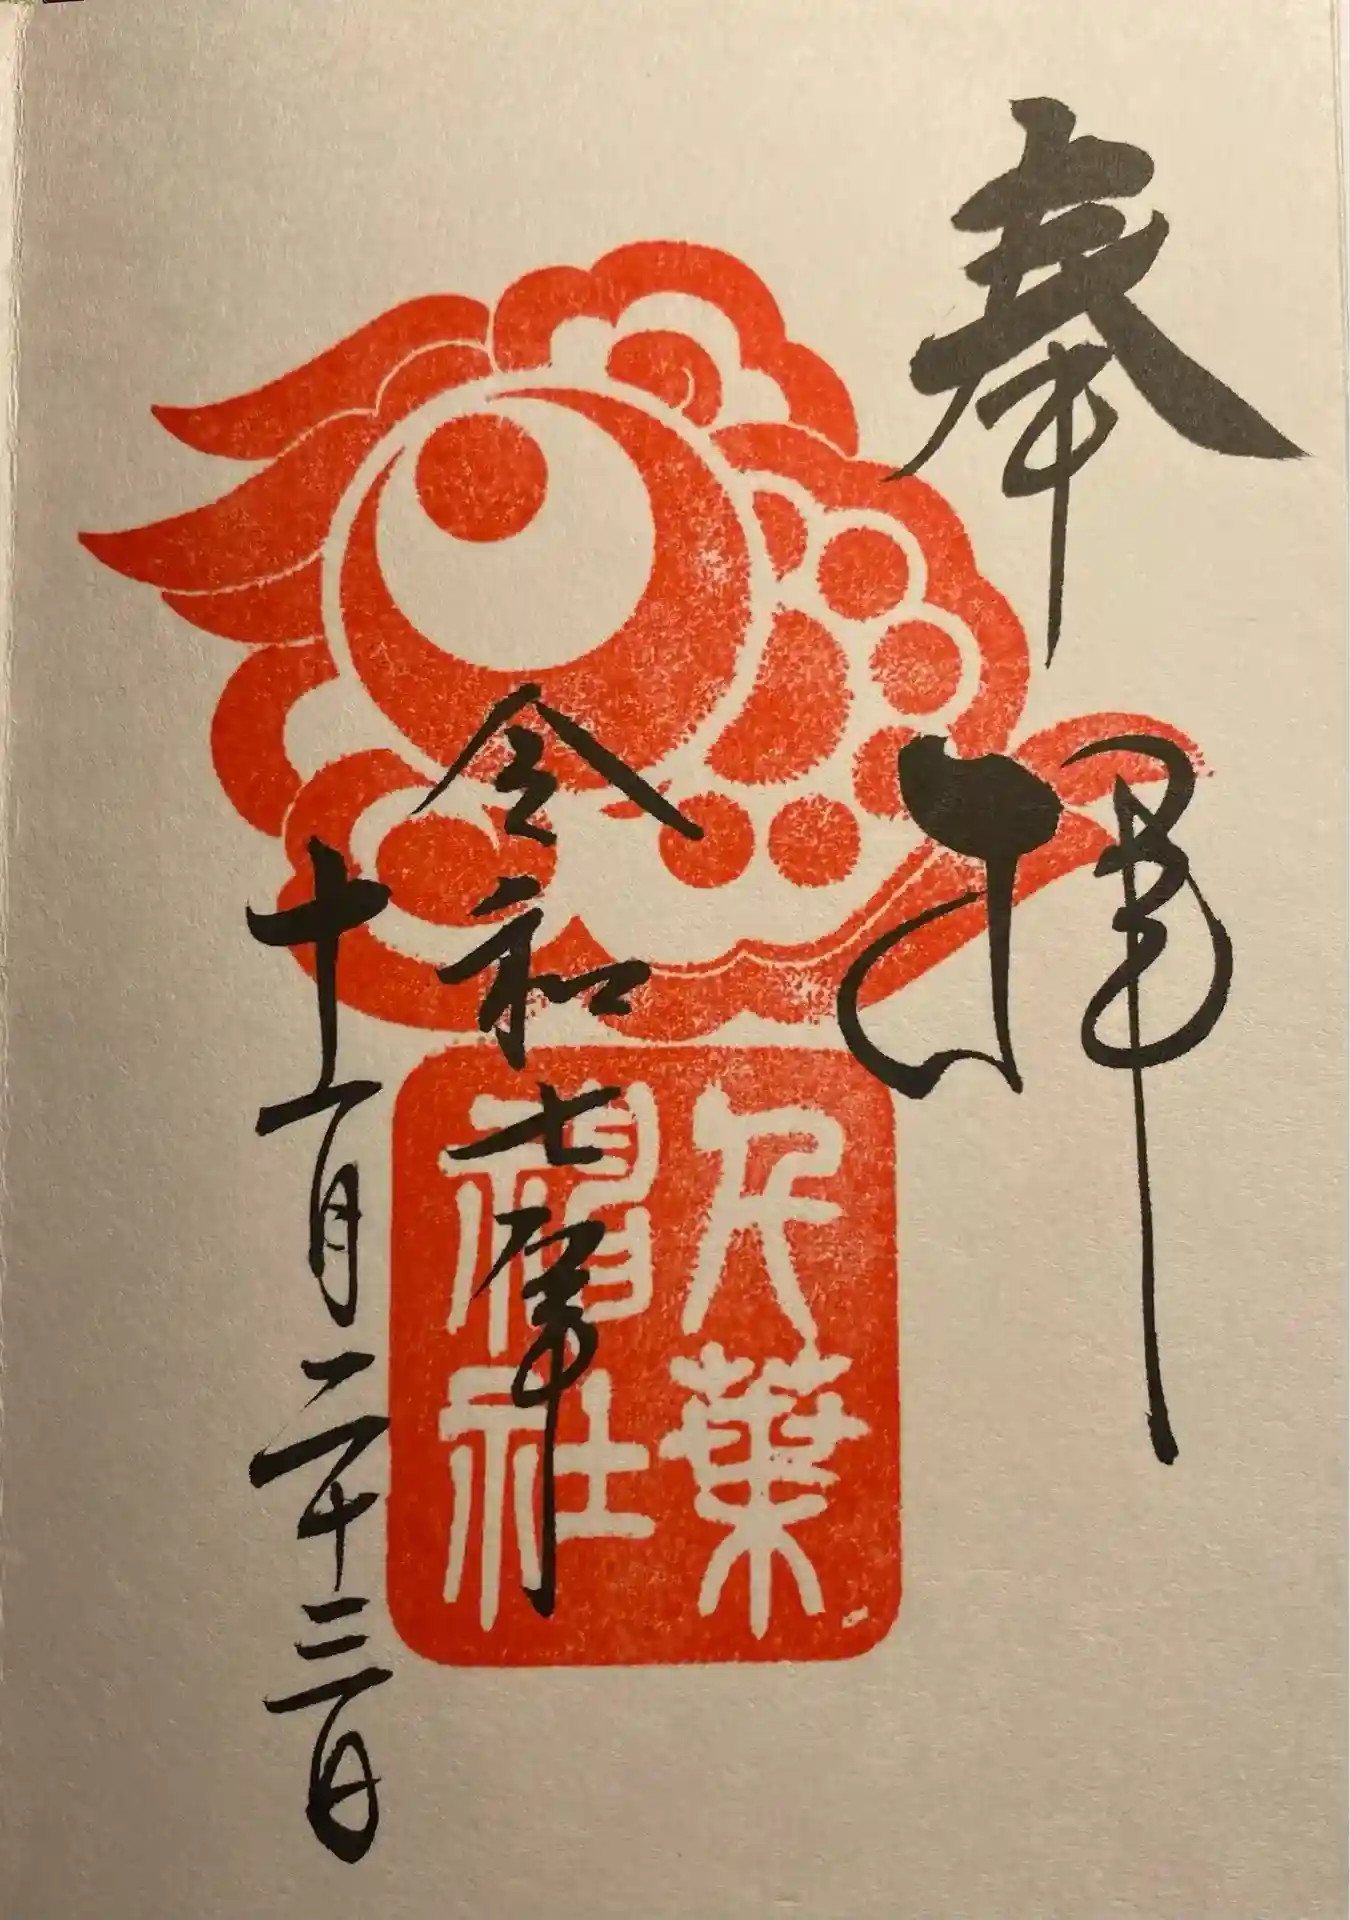 奉拝
千葉
神社
令和七年
十一月二十三日